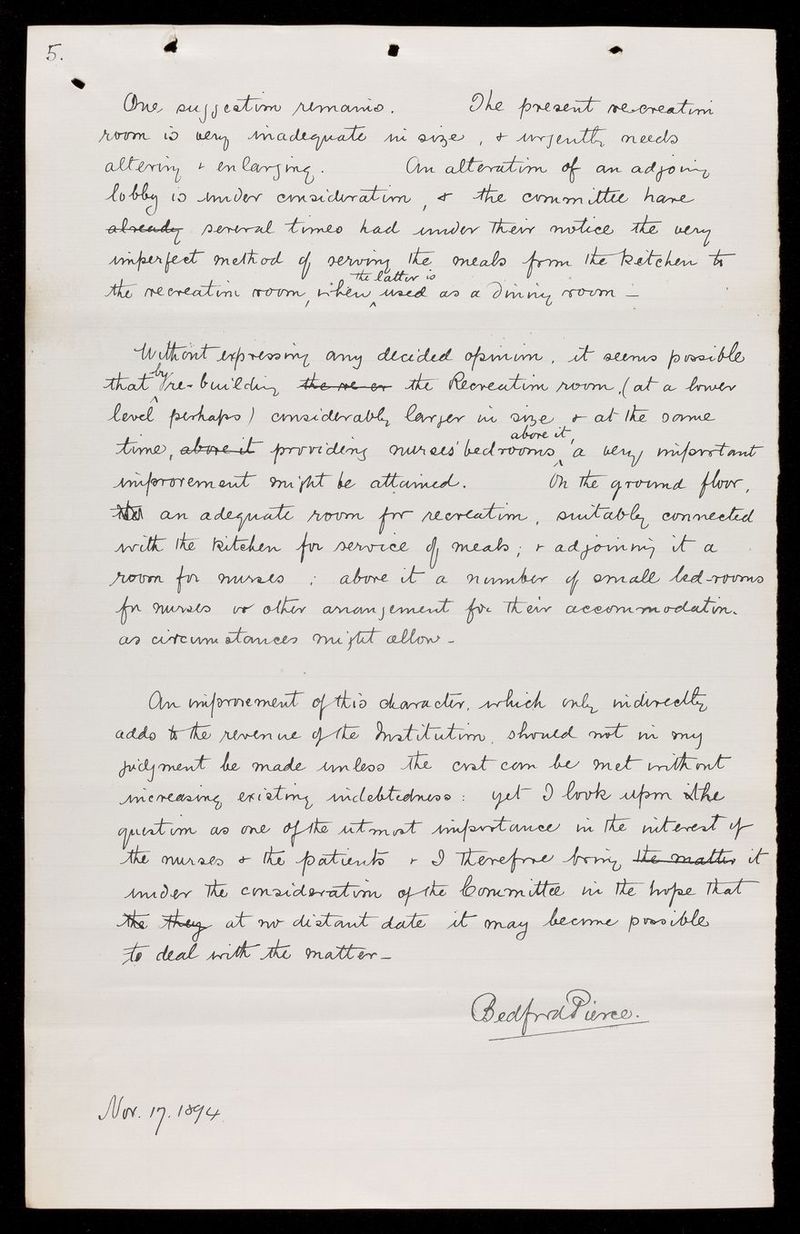 5.
One suggestion remains. The present recreation
room is very inadequate in size, & urgently needs
altering & enlarging. An alteration of an adjoing
lobby is under consideration, & the committee have
already several times had under their notice the very
imperfect method of serving the meals from the kitchen to
the latter is
the recreation room, when used as a dining room —
Without expressing any decided opinion, it seems possible
by
that re-building the re-er the Recreation room, (at a lower
level perhaps) considerably larger in size & at the same
above it,
time, above it providing nurses' bedrooms a very important
improvement might be attained. On the ground floor,
an adequate room for recreation, suitably connected
with the kitchen for service of meals; & adjoining it a
room for nurses : above it a number of small bed-rooms
for nurses or other arrangement for their accommodation.
as circumstances might allow –
An improvement of this character, which only indirectly
adds to the revenue of the Institution, should not in my
judgment be made unless the cost can be met without
increasing existing indebtedness : yet I look upon the
question as one of the utmost importance in the interest of
the nurses & the patients & I therefore bring the matter it
under the consideration of the Committee in the hope that
the they at no distant date it may become possible
to deal with the matter —
Bedford Pierce.
Nov. 17. 1894